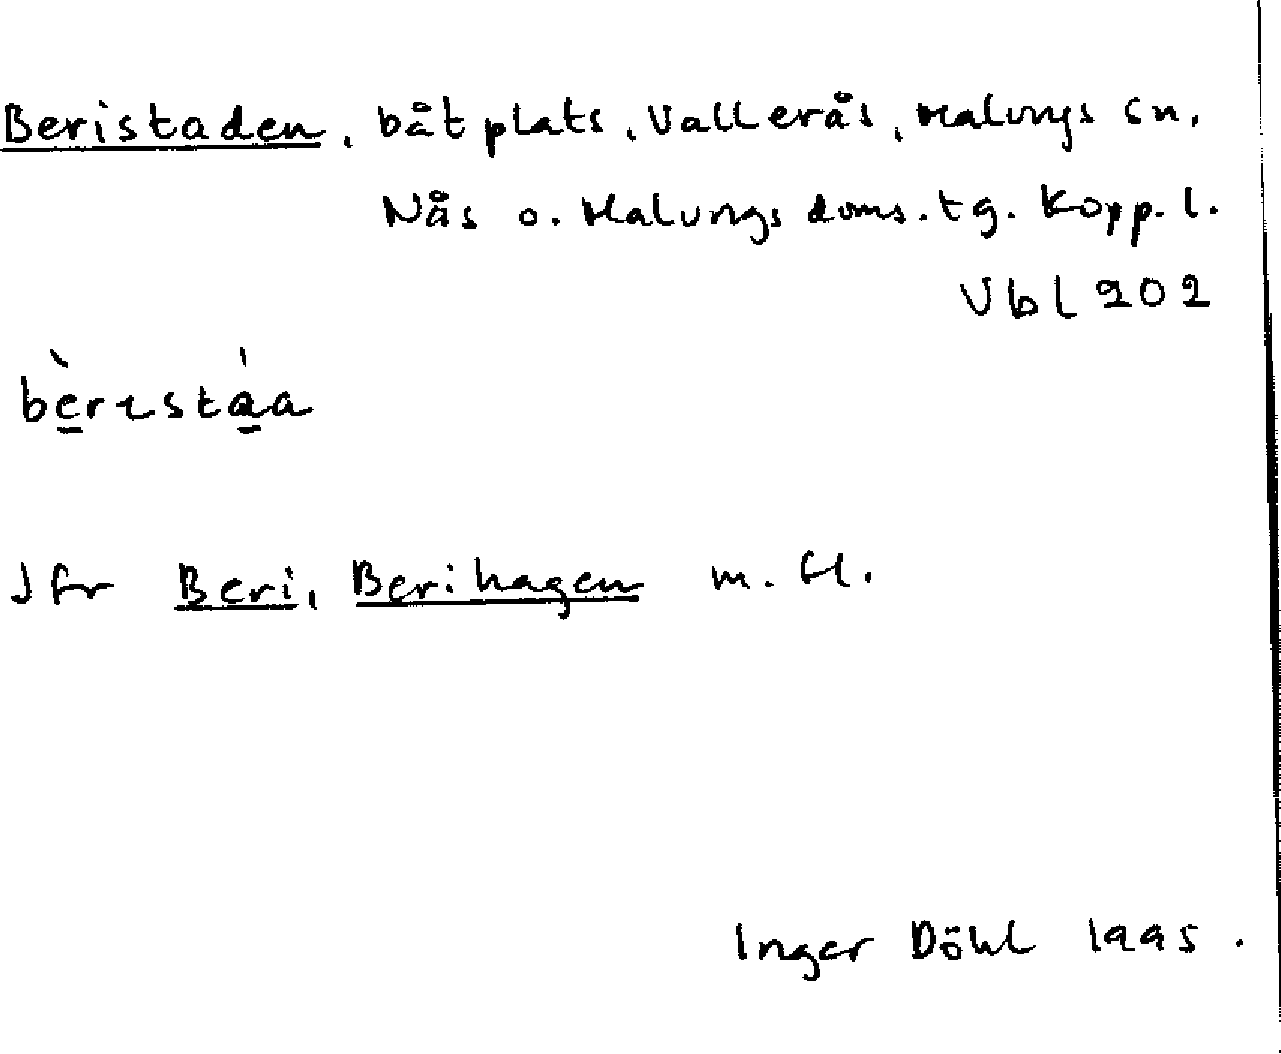 Beristaden, båtplats, Vallerås, Malungs sn.
Nås o. Malungs doms.tg. Kopp. l.
Vbl 202
bèrɪstáa
Jfr Beri, Berihagen m. fl.
Inger Döhl 1995.